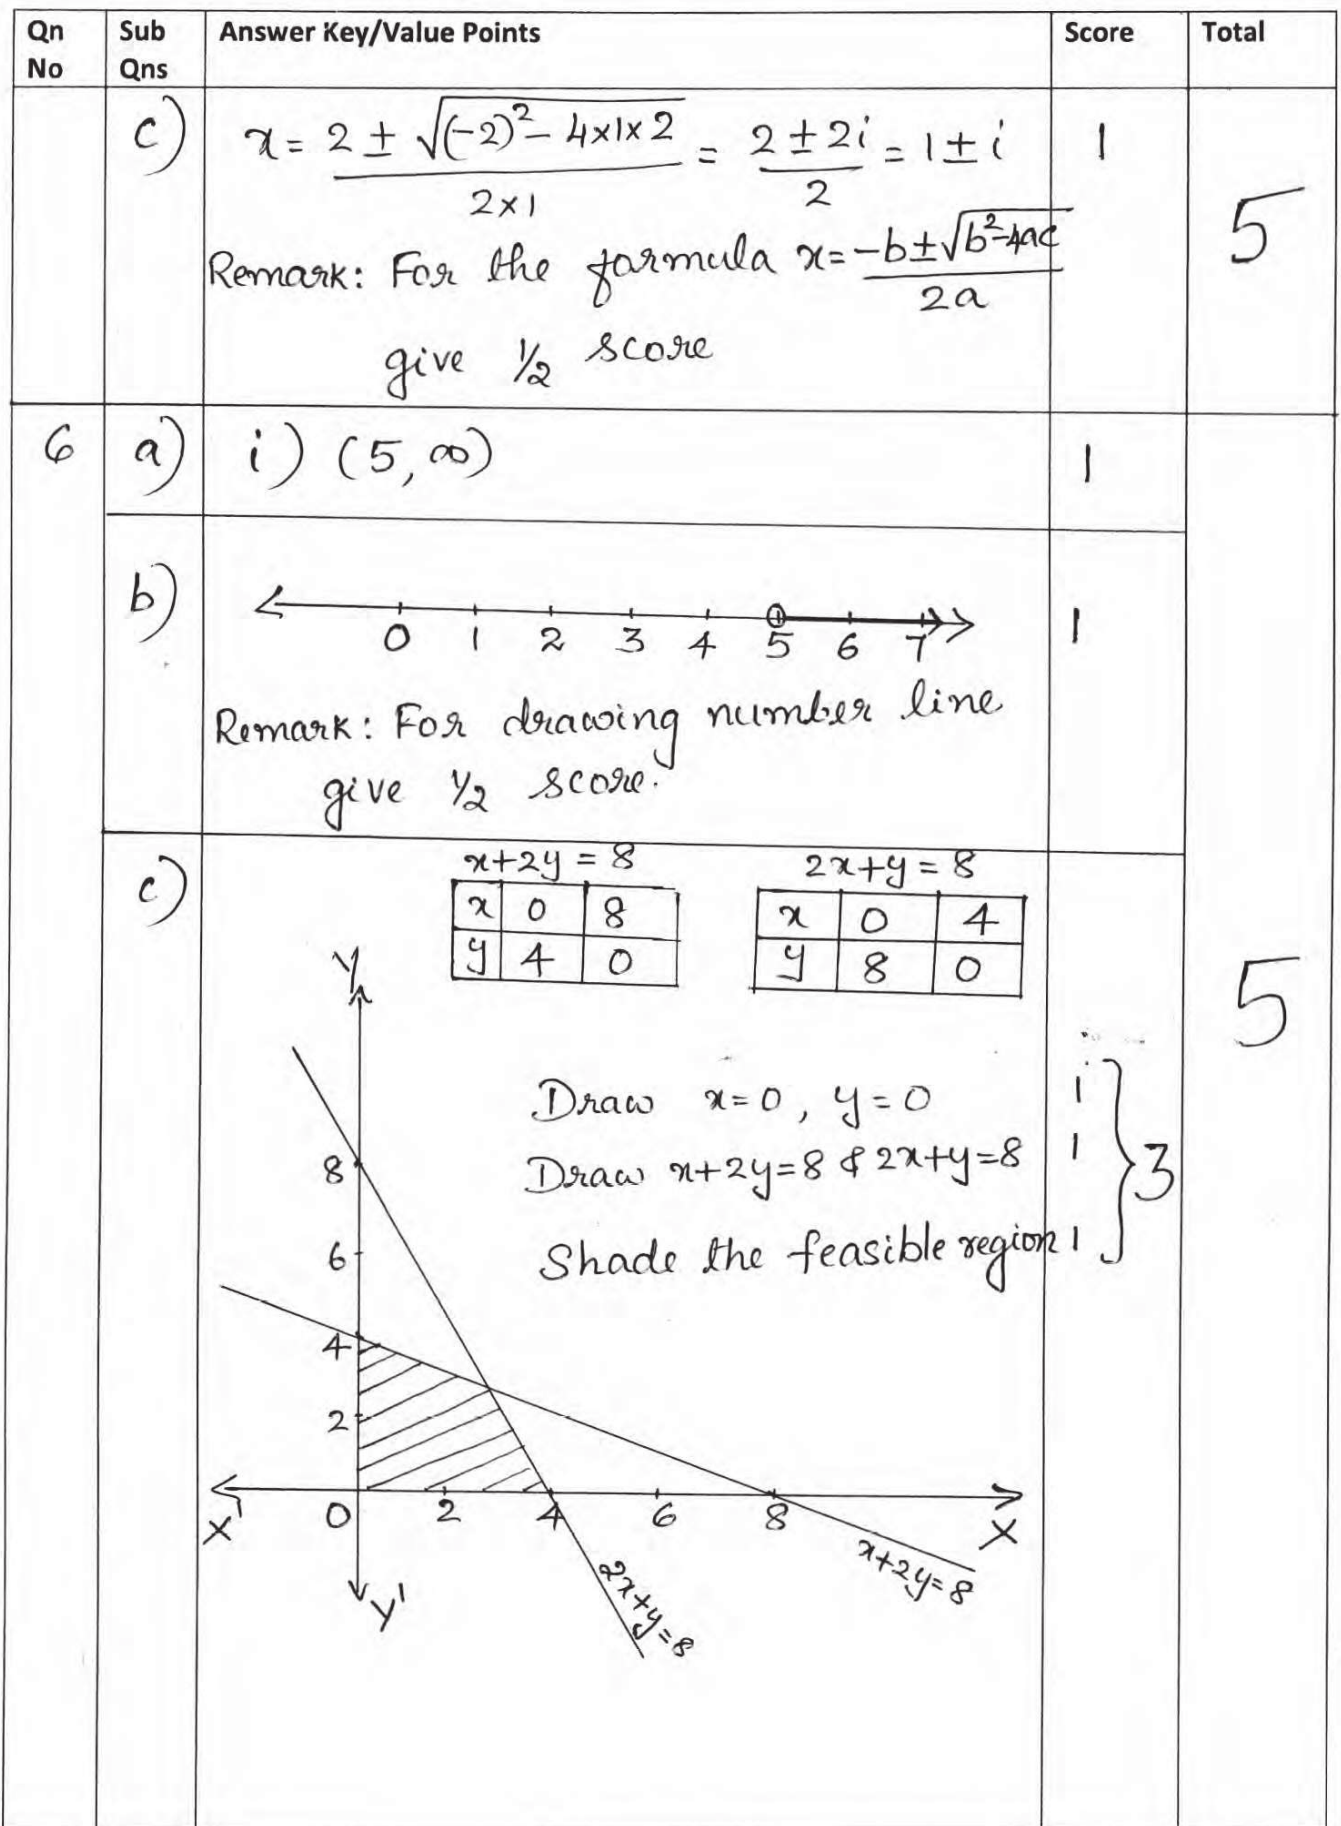 Qn No Sub Qns Answer Key/Value Points Score Total
c) x = 2 ± √((-2)² - 4×1×2) / 2×1 = 2 ± 2i / 2 = 1 ± i 1
Remark: For the formula x = -b ± √(b²-4ac) / 2a 5
give 1/2 score
6 a) i) (5, ∞) 1
b) 0 1 2 3 4 5 6 7 1
Remark: For drawing number line
give 1/2 score.
c) x+2y = 8 2x+y = 8
x 0 8 x 0 4
y 4 0 y 8 0
Y 5
Draw x=0, y=0 1
8 Draw x+2y=8 & 2x+y=8 1 } 3
6 Shade the feasible region 1
4
2
X' 0 2 4 6 8 X
Y' 2x+y=8 x+2y=8